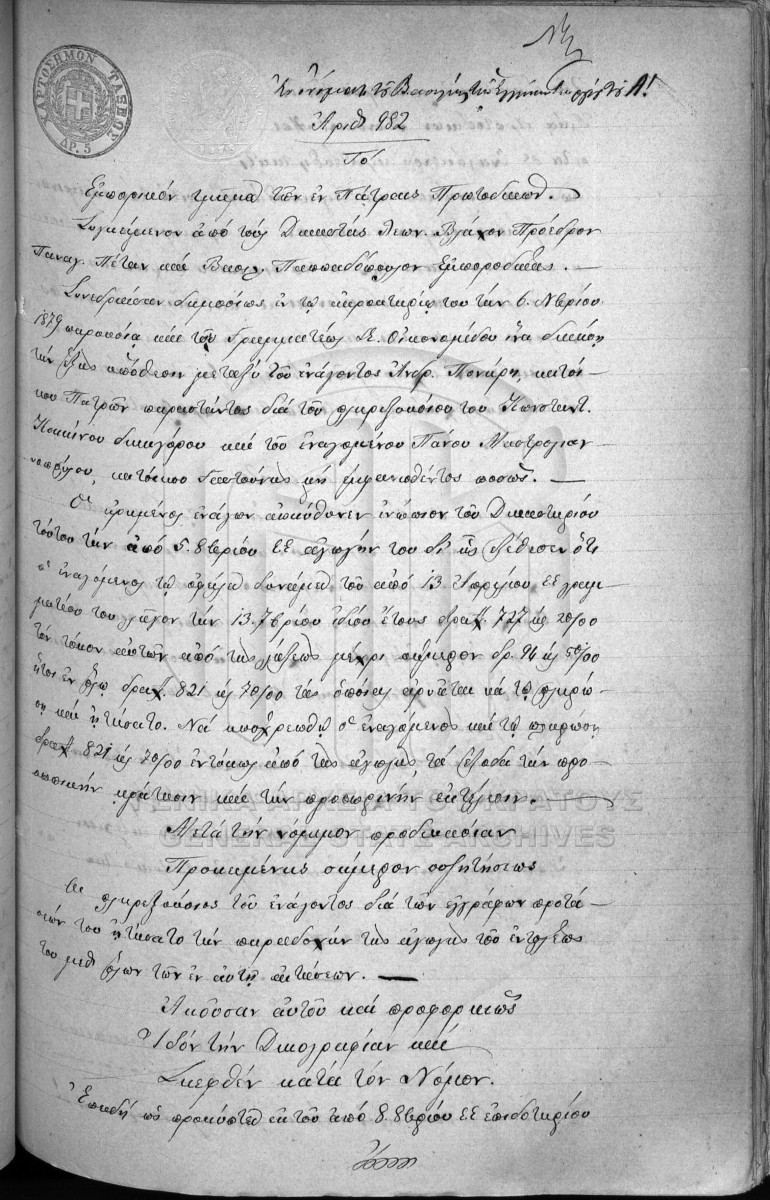 ΧΑΡΤΟΣΗΜΟΝ Γ ΤΑΞΕΩΣ
ΔΡ. 5
Ἐν ὀνόματι τοῦ Βασιλέως τῶν Ἑλλήνων Γεωργίου τοῦ Α!
Ἀριθ 982
Τό
Ἐμπορικόν τμῆμα τῶν ἐν Πάτραις Πρωτοδικῶν. —
Συγκείμενον ἀπό τούς Δικαστάς Λεων. Βλάχον Πρόεδρον
Παναγ. Πέταν καί Βασιλ. Παππαδόπουλον Ἐμποροδίκας. —
Συνεδριάσαν δημοσίως ἐν τῷ ἀκροατηρίῳ του τήν 6. Νβρίου
1879 παρουσίᾳ καί τοῦ Γραμματέως Οἰκονομίδου ἵνα δικάσῃ
τήν ἑξῆς ὑπόθεσιν μεταξύ τοῦ ἐνάγοντος Ἀνδρ. Πονήρη, κατοί-
κου Πατρῶν παραστάντος διά τοῦ πληρεξουσίου του Κωνσταντ.
Κοκκίνου δικηγόρου καί τοῦ ἐναγομένου Πάνου Μαστρογιαν-
νοπούλου, κατοίκου Γαστούνης μή ἐμφανισθέντος ποσῶς. —
Ὁ εἰρημένος ἐνάγων ἀπηύθυνεν ἐνώπιον τοῦ Δικαστηρίου
τούτου τήν ἀπό 5. 8βρίου ΕΕ ἀγωγήν του δι' ἧς ἐξέθεσεν ὅτι
ὁ ἐναγόμενος τῷ ὀφείλει δυνάμει τοῦ ἀπό 13 Ἀπριλίου ΕΕ γραμ-
ματίου του λῆγον τήν 13. 7βρίου ἰδίου ἔτους δραχ. 727 κ 20/00
τόν τόκον αὐτῶν ἀπό τῆς λήξεως μέχρι σήμερον δρ. 94 κ 50/00
ἤτοι ἐν ὅλῳ δραχ. 821 κ 70/00 τάς ὁποίας ἀρνεῖται νά τῷ πληρώ-
σῃ καί ᾐτήσατο. Νά ὑποχρεωθῇ ὁ ἐναγόμενος καί τῷ πληρώσῃ
δραχ. 821 κ 70/00 ἐντόκως ἀπό τῆς ἀγωγῆς, τά ἔξοδα τήν προ-
σωπικήν κράτησιν καί τήν προσωρινήν ἐκτέλεσιν. —
ΓΕΝΙΚΑ ΑΡΧΕΙΑ ΤΟΥ ΚΡΑΤΟΥΣ
GENERAL STATE ARCHIVES
Μετά τήν νόμιμον προδικασίαν
Προκειμένης σήμερον συζητήσεως
Ὁ πληρεξούσιος τοῦ ἐνάγοντος διά τῶν ἐγγράφων προτά-
σεών του ᾐτήσατο τήν παραδοχήν τῆς ἀγωγῆς τοῦ ἐντολέως
του μεθ' ὅλων τῶν ἐν αὐτῇ αἰτήσεων. —
Ἀκοῦσαν αὐτοῦ καί προφορικῶς
Ἰδόν τήν Δικογραφίαν καί
Σκεφθέν κατά τόν Νόμον.
Ἐπειδή ὡς προκύπτει ἐκ τοῦ ἀπό 8. 8βρίου ΕΕ ἐπιδοτηρίου